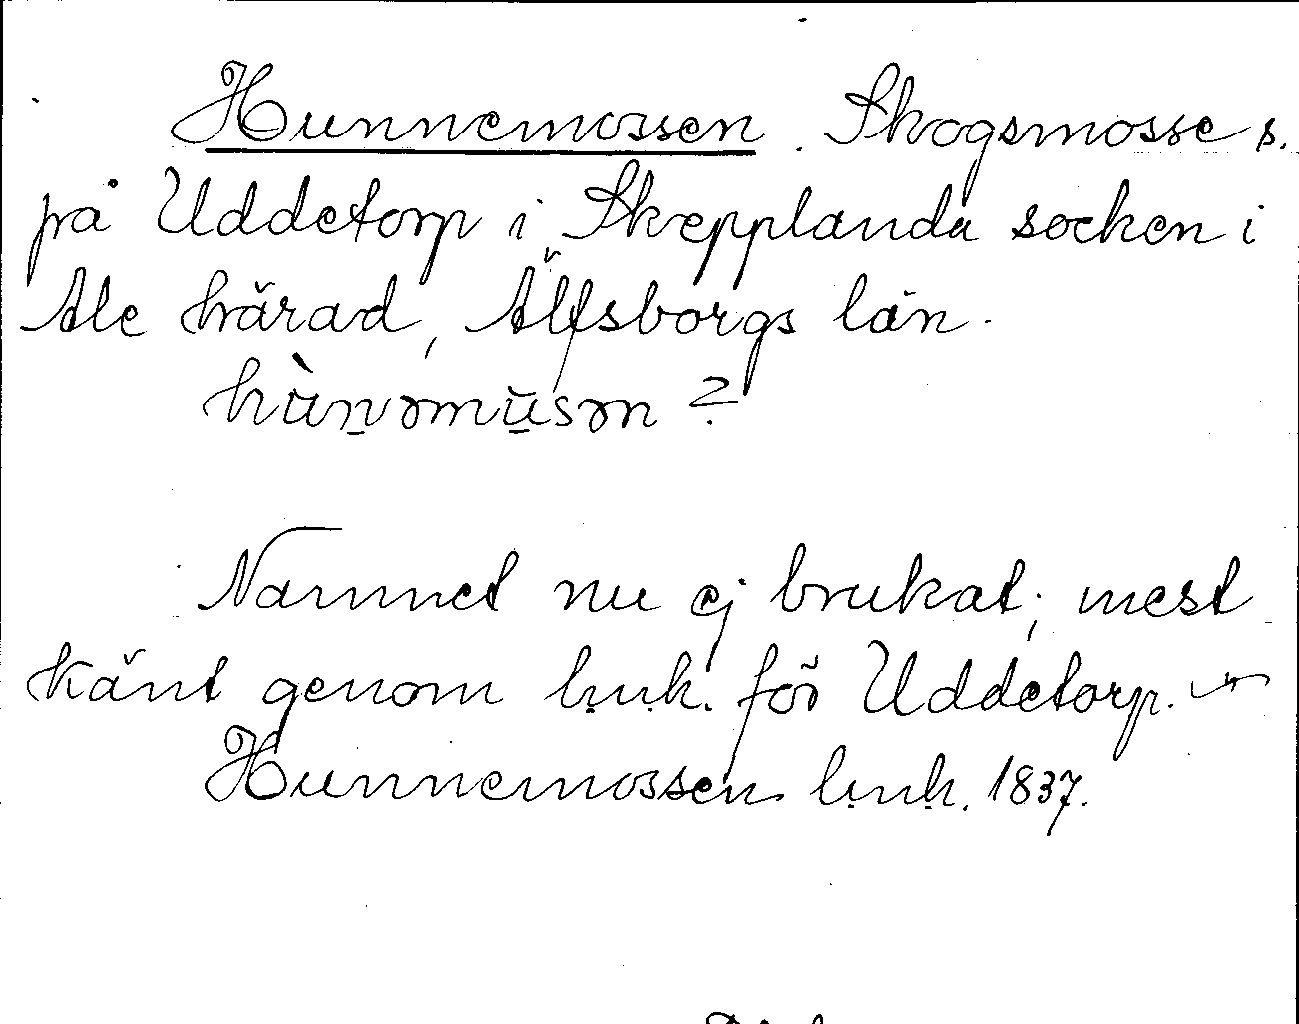 Hunnemossen. Skogsmosse s.
på Uddetorp i Skepplanda socken i
Ale härad, Älfsborgs län.
hùnəmu̇sən ?
Namnet nu ej brukat; mest
känt genom lmk. för Uddetorp.
Hunnemossen lmk. 1837.